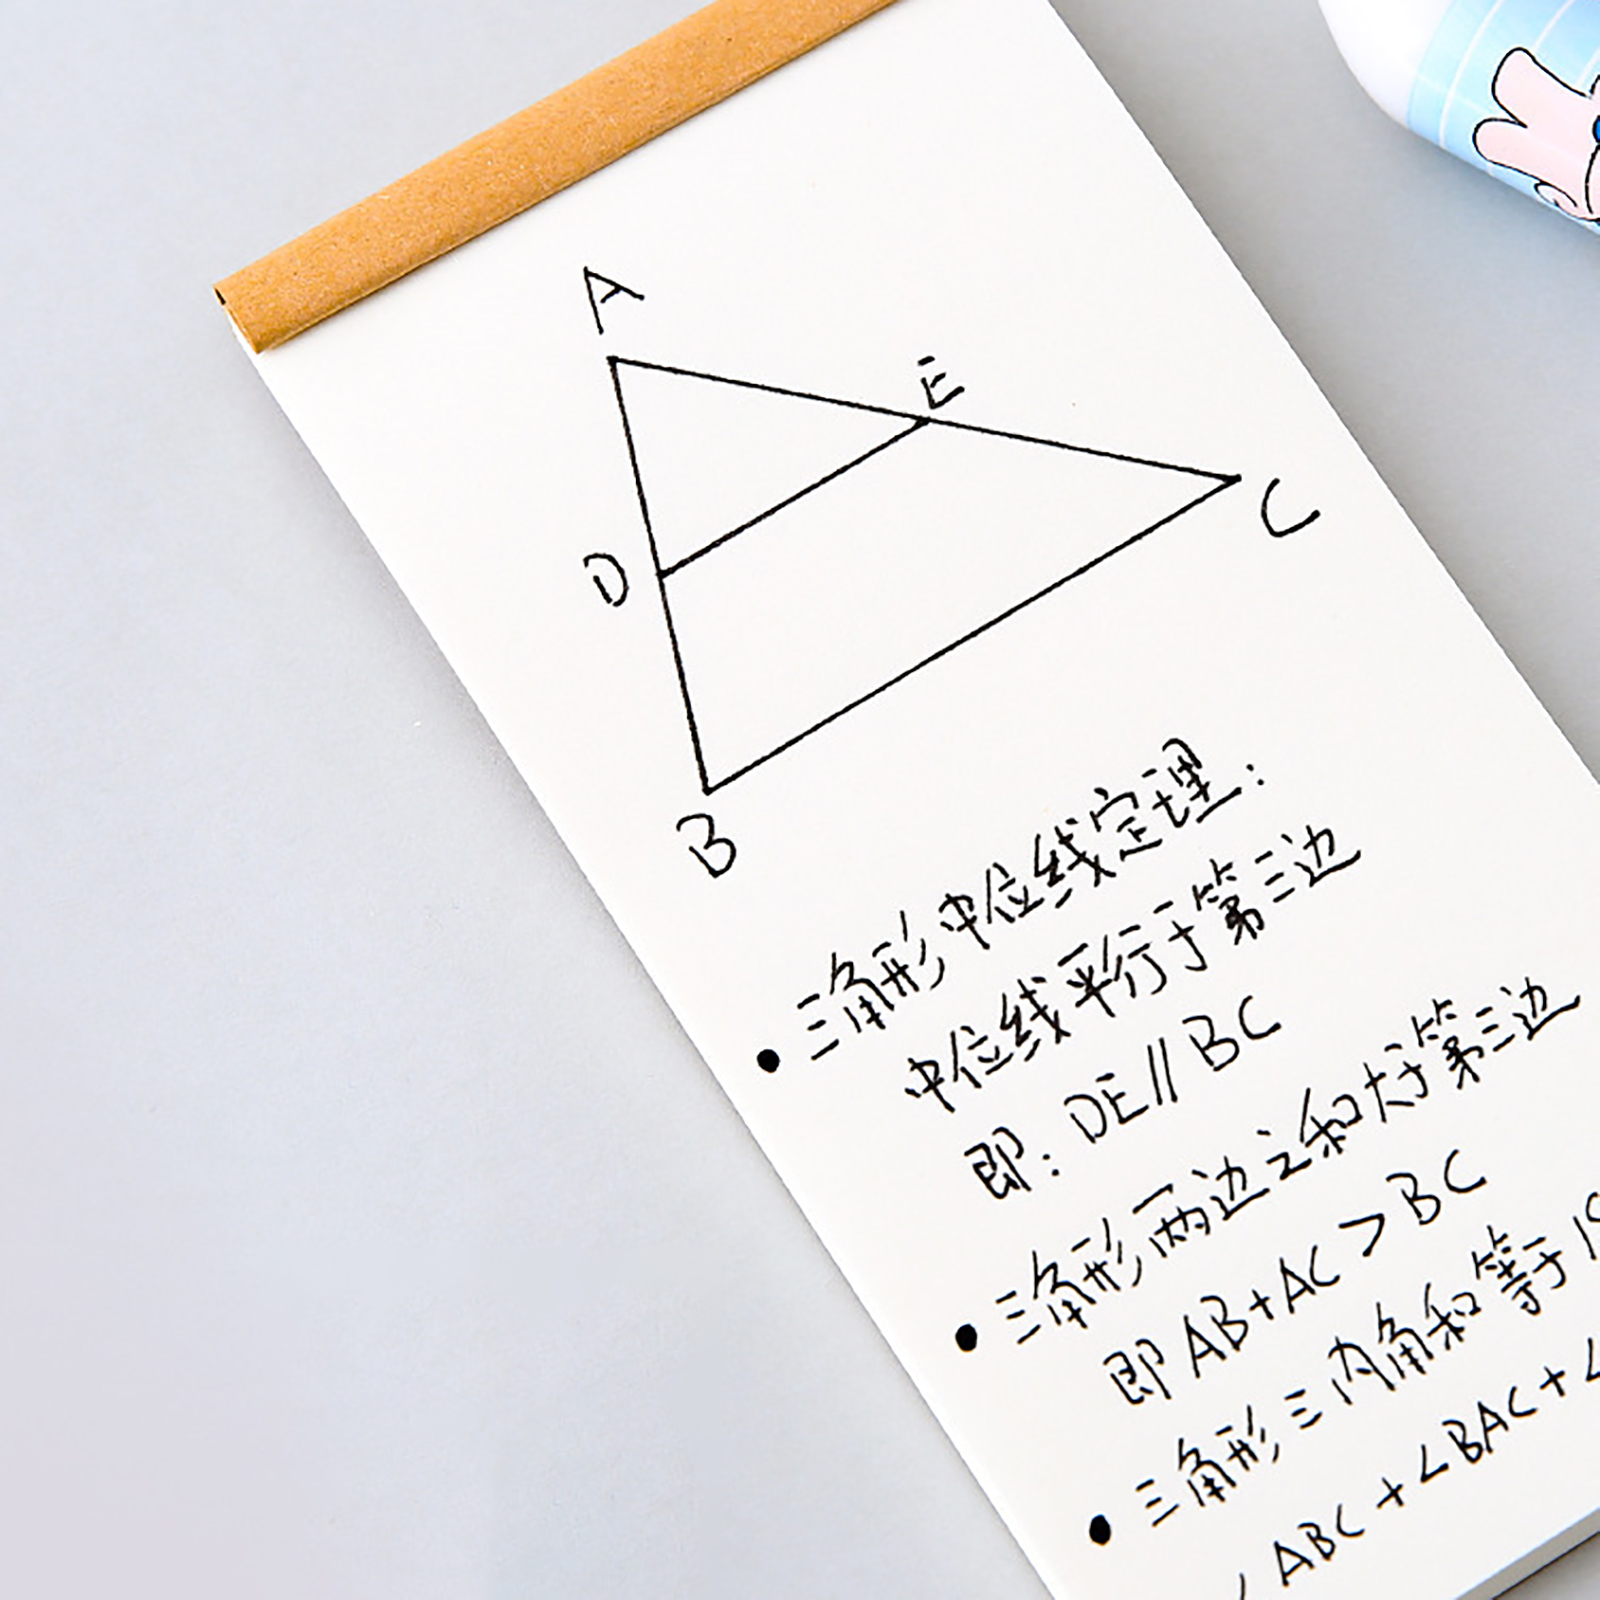 A
E
C
D
B
三角形中位线定理:
中位线平行于第三边
即: DE∥BC
三角形两边之和大于第三边
即 AB+AC>BC
三角形三内角和等于
ABC+∠BAC+∠